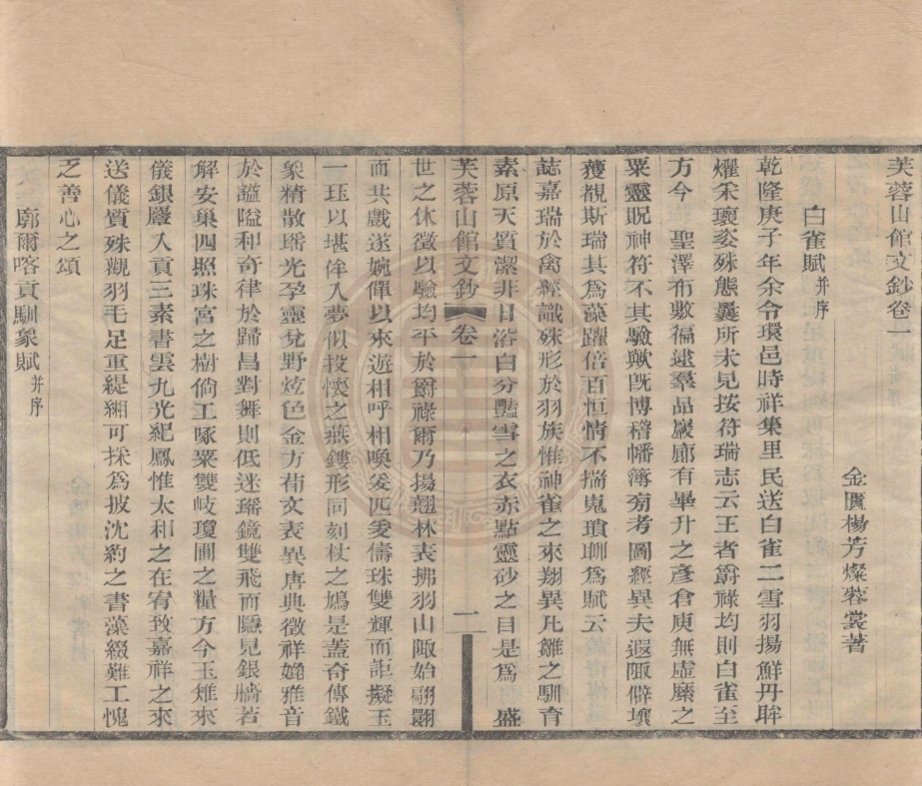 芙蓉山館文鈔卷一
金匱楊芳燦蓉裳著
白雀賦并序
乾隆庚子年余令環邑時祥集里民送白雀二雪羽揚鮮丹眸
燿采瓌姿殊態曩所未見按符瑞志云王者爵祿均則白雀至
方今 聖澤布敷福逮羣品巖廊有畢升之彥倉庾無虛廩之
粟靈貺神符不其驗歟旣博稽幡簿旁考圖經異夫遐陬僻壤
獲覩斯瑞其爲藻躍倍百恒情不揣嵬瑣聊爲賦云
誌嘉瑞於禽經識殊形於羽族惟神雀之來翔異凡雛之馴育
素原天質潔非日浴白分豔雪之衣赤點靈砂之目是爲 盛
芙蓉山館文鈔 卷一 一
世之休徵以驗均平於爵祿爾乃揚翹林表拂羽山陬始翩翾
而共戲遂婉僤以來遊相呼相喚爰匹爰儔珠雙輝而詎擬玉
一珏以堪侔入夢似投懷之燕鏤形同刻杖之鳩是蓋奇傳鐵
象精散瑤光孕靈兌野炫色金方荷文表異唐典徵祥媲雅音
於謐隘和奇律於歸昌對舞則低迷瑤鏡雙飛而隱見銀牆若
解安巢四照珠宮之樹倘工啄粟雙岐瓊圃之糧方今玉雉來
儀銀麞入貢三素書雲九光紀鳳惟太和之在宥致嘉祥之來
送儀質殊觀羽毛足重緹緗可採爲披沈約之書藻綴難工愧
之善心之頌
廓爾喀貢馴象賦并序